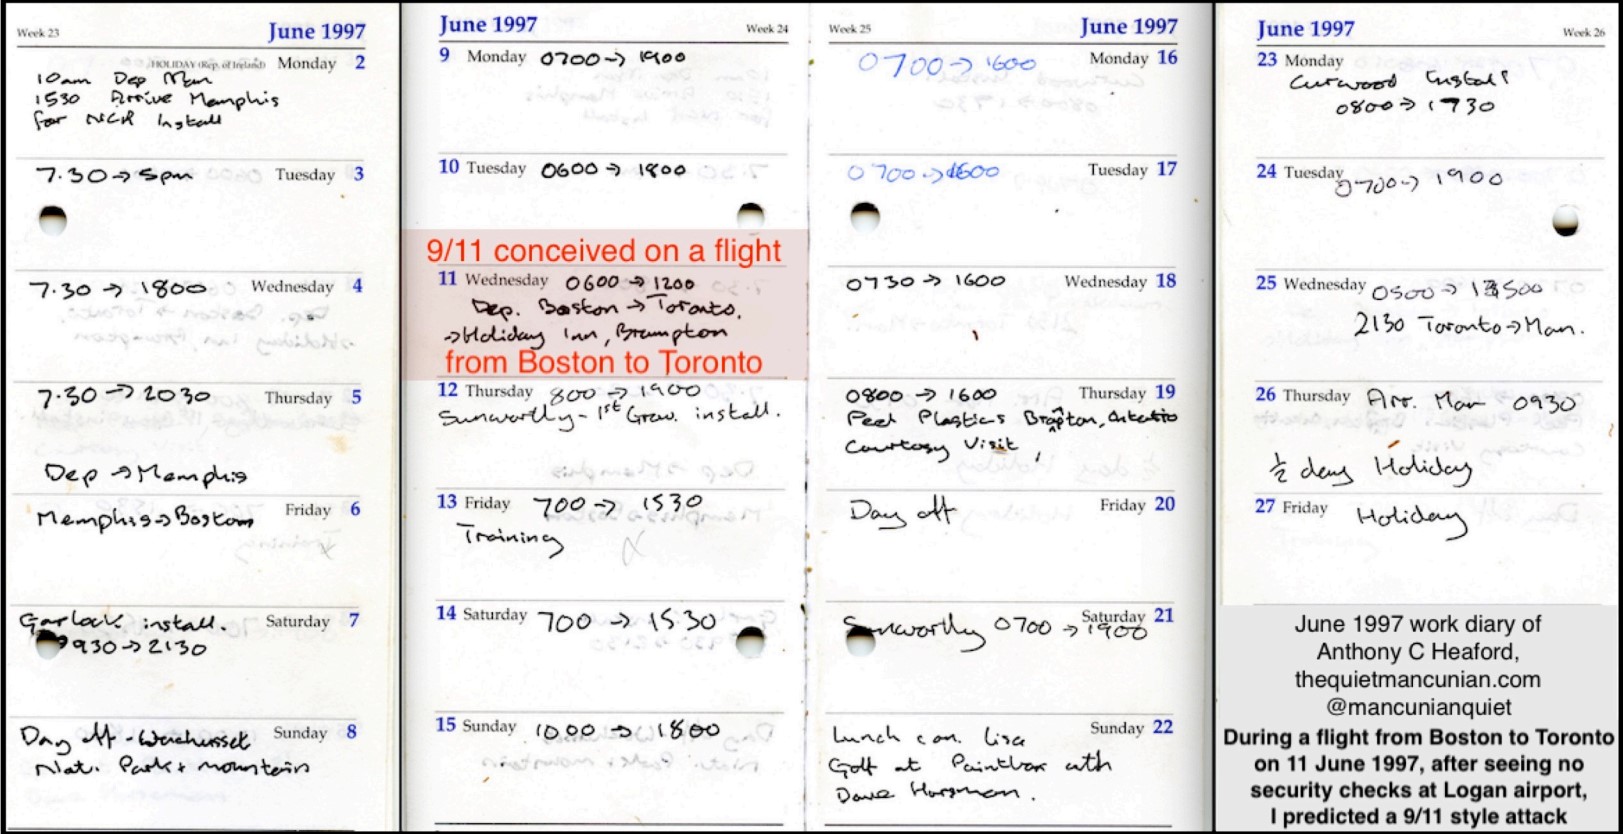 Week 23 June 1997
HOLIDAY (Rep. of Ireland) Monday 2
10am Dep Man
1530 Arrive Memphis
for NCR Install
7.30 → 5pm Tuesday 3
7.30 → 1800 Wednesday 4
7.30 → 2030 Thursday 5
Dep → Memphis
Memphis → Boston Friday 6
Garlock install. Saturday 7
0930 → 2130
Day off - Wachusset Sunday 8
Nat. Park + mountain
June 1997 Week 24
9 Monday 0700 → 1900
10 Tuesday 0600 → 1800
9/11 conceived on a flight
11 Wednesday 0600 → 1200
Dep. Boston → Toronto.
→ Holiday Inn, Brampton
from Boston to Toronto
12 Thursday 800 → 1900
Sunworthy - 1st Grav. install.
13 Friday 700 → 1530
Training
14 Saturday 700 → 1530
15 Sunday 1000 → 1800
Week 25 June 1997
0700 → 1600 Monday 16
0700 → 1600 Tuesday 17
0730 → 1600 Wednesday 18
0800 → 1600 Thursday 19
Peel Plastics Brampton, Ontario
Courtesy Visit
Day off Friday 20
Saturday 21
Sunworthy 0700 → 1900
Lunch Lisa Sunday 22
Golf at Paintbox with
Dave Horsman.
June 1997 Week 26
23 Monday
Curwood Install
0800 → 1730
24 Tuesday 0700 → 1900
25 Wednesday 0500 →
2130 Toronto → Man.
26 Thursday Arr. Man 0930
½ day Holiday
27 Friday Holiday
June 1997 work diary of
Anthony C Heaford,
thequietmancunian.com
@mancunianquiet
During a flight from Boston to Toronto
on 11 June 1997, after seeing no
security checks at Logan airport,
I predicted a 9/11 style attack